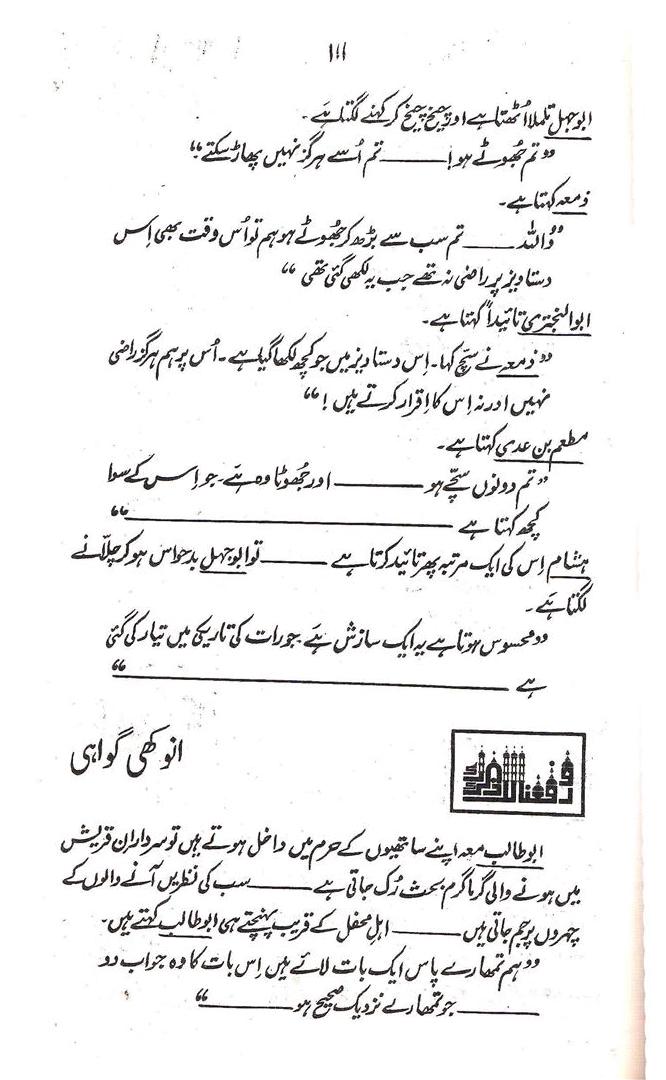 ۱۱۱
ابوجہل تلملا اُٹھتا ہے اور چیخ چیخ کر کہنے لگتا ہے۔
”تم جُھوٹے ہو! ——— تم اُسے ہرگز نہیں پھاڑ سکتے!“
ذمعہ کہتا ہے۔
”وَاللہ ——— تم سب سے بڑھ کر جُھوٹے ہو ہم تو اُس وقت بھی اِس
دستاویز پر راضی نہ تھے جب یہ لکھی گئی تھی“
ابوالبختری تائیداً کہتا ہے۔
”ذمعہ نے سچ کہا۔ اِس دستاویز میں جو کچھ لکھا گیا ہے۔ اُس پر ہم ہرگز راضی
نہیں اور نہ اِس کا اِقرار کرتے ہیں!“
مطعم بن عدی کہتا ہے۔
”تم دونوں سچّے ہو ——— اور جُھوٹا وہ ہے۔ جو اِس کے سوا
کچھ کہتا ہے ———“
ہشام اِس کی ایک مرتبہ پھر تائید کرتا ہے ——— تو ابوجہل بدحواس ہو کر چلّانے
لگتا ہے۔
”محسوس ہوتا ہے یہ ایک سازش ہے جو رات کی تاریکی میں تیار کی گئی
ہے ———“
ورفعنا لک ذکرک
انوکھی گواہی
ابوطالب معہ اپنے ساتھیوں کے حرم میں داخل ہوتے ہیں تو سردارانِ قریش
میں ہونے والی گرما گرم بحث رُک جاتی ہے ——— سب کی نظریں آنے والوں کے
چہروں پر جم جاتی ہیں ——— اہلِ محفل کے قریب پہنچتے ہی ابوطالب کہتے ہیں۔
”ہم تمھارے پاس ایک بات لائے ہیں اِس بات کا وہ جواب دو
——— جو تمھارے نزدیک صحیح ہو ———“